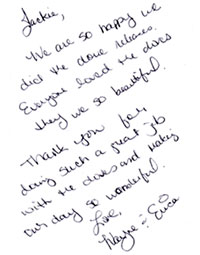 Jackie,
We are so happy we
did the dove release.
Everyone loved the doves
they we so beautiful.
Thank you for,
doing such a great job
with the doves and making
our day so wonderful.
Love,
Wayne & Erica